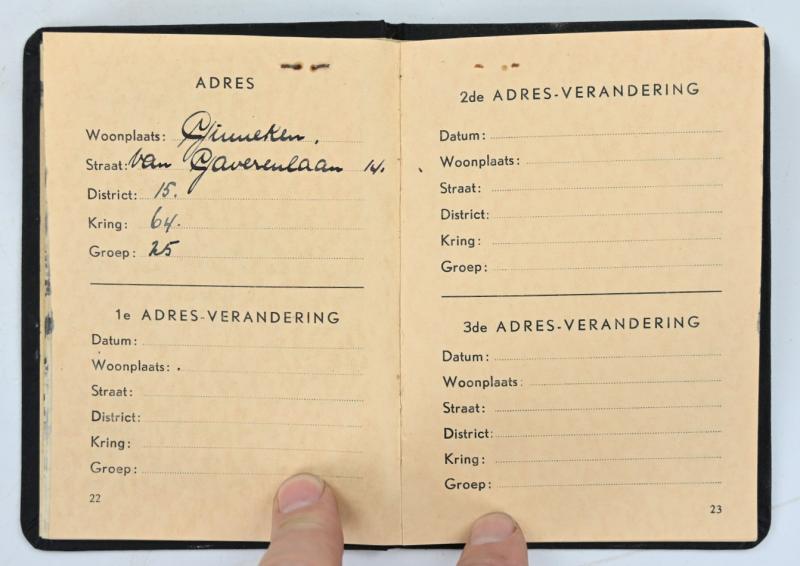 ADRES
Woonplaats: Ginneken.
Straat: van Gaverenlaan 14.
District: 15.
Kring: 64.
Groep: 25
1e ADRES-VERANDERING
Datum:
Woonplaats:
Straat:
District:
Kring:
Groep:
22
2de ADRES-VERANDERING
Datum:
Woonplaats:
Straat:
District:
Kring:
Groep:
3de ADRES-VERANDERING
Datum:
Woonplaats:
Straat:
District:
Kring:
Groep:
23